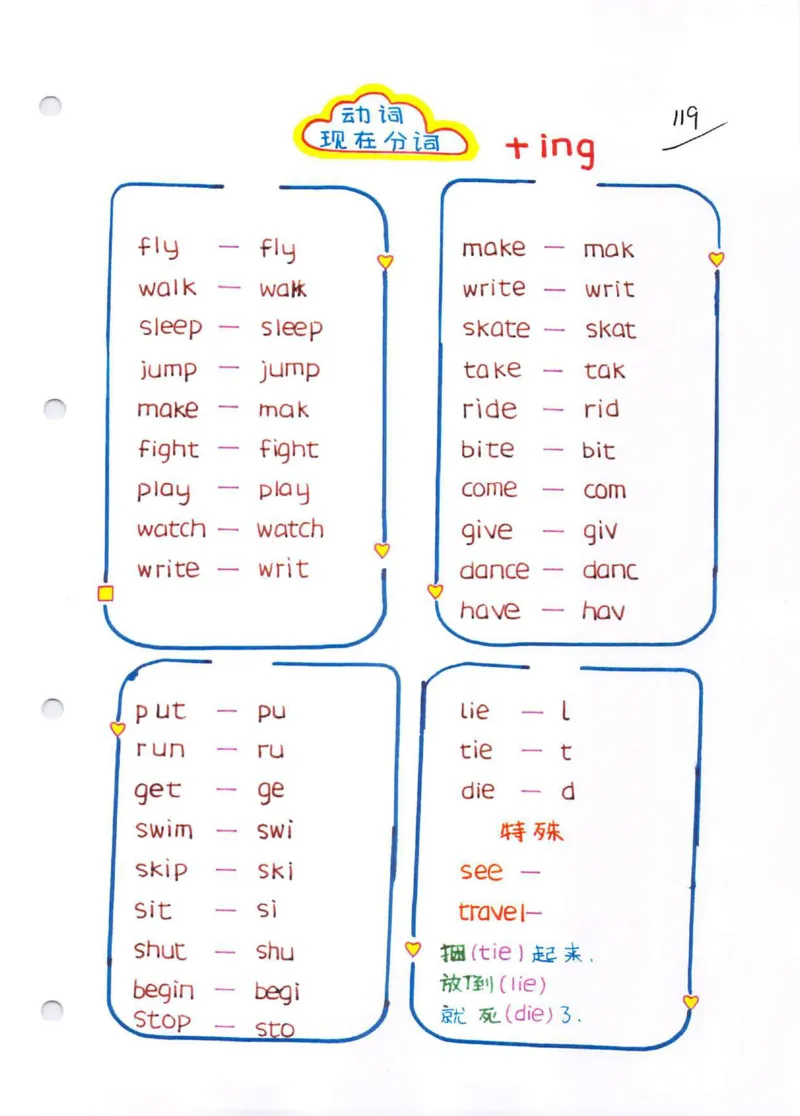 动词
现在分词
+ing
119
fly — fly
walk — walk
sleep — sleep
jump — jump
make — mak
fight — fight
play — play
watch — watch
write — writ
make — mak
write — writ
skate — skat
take — tak
ride — rid
bite — bit
come — com
give — giv
dance — danc
have — hav
put — pu
run — ru
get — ge
swim — swi
skip — ski
sit — si
shut — shu
begin — begi
stop — sto
lie — l
tie — t
die — d
特殊
see —
travel—
捆(tie)起来.
放倒(lie)
就死(die)了.